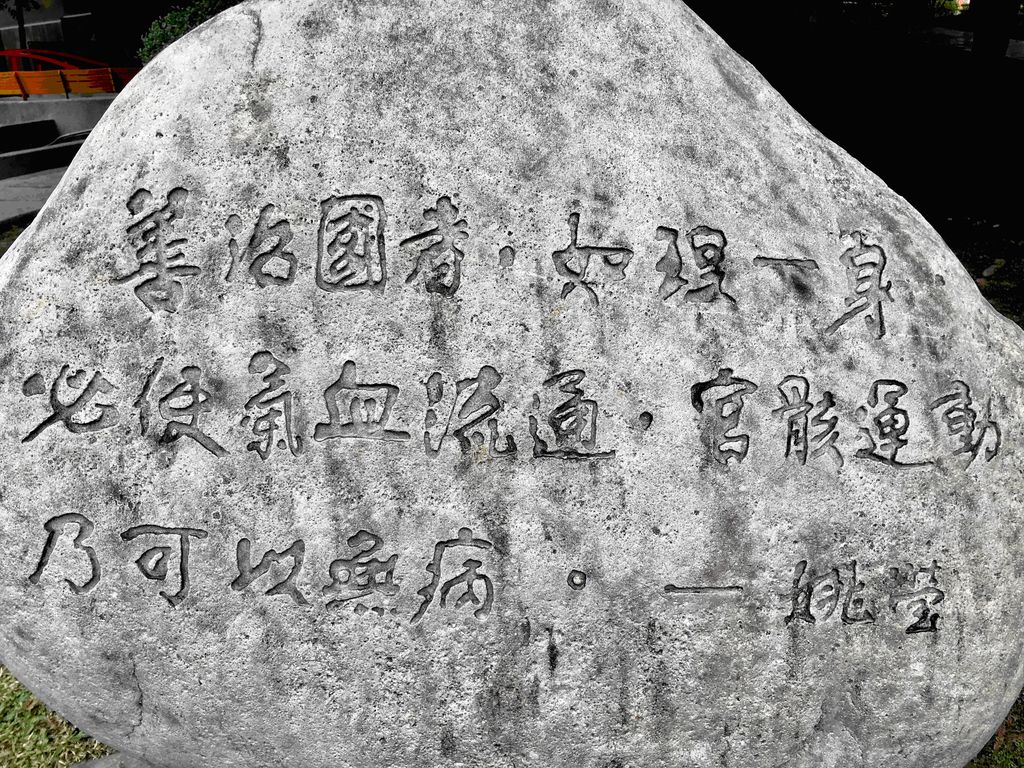 善治國者，如理一身
必使氣血流通，官骸運動
乃可以無病。—姚瑩